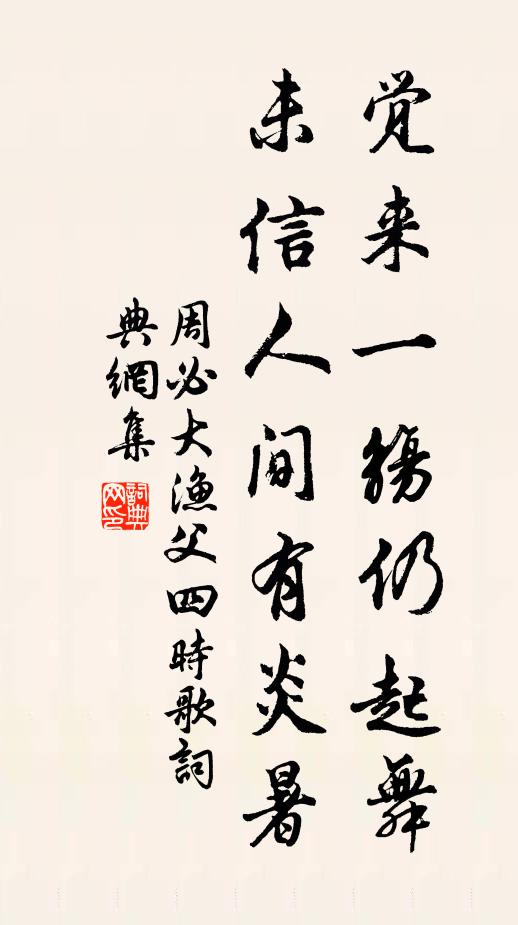 觉来一觞仍起舞
未信人间有炎暑
周必大漁父四時歌詞
典網集
詞典网印